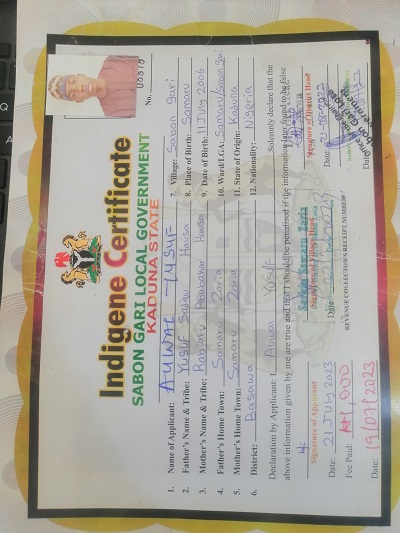 No. 00878
Indigene Certificate
SABON GARI LOCAL GOVERNMENT
KADUNA STATE
1. Name of Applicant: AUWAL YUSUF
2. Father's Name & Tribe: Yusuf Hausa
3. Mother's Name & Tribe: Abubakar Hausa
4. Father's Home Town: Samaru Zaria
5. Mother's Home Town: Samaru Zaria
6. District: Basawa
7. Village: Sabon gari
8. Place of Birth: Samaru
9. Date of Birth: 11 July 2006
10. Ward/LGA: Samaru/Sabon Gari
11. State of Origin: Kaduna
12. Nationality: Nigeria
Declaration by Applicant: I Auwal Yusuf Solemnly declare that the
above information given by me are true and that I should be penalised if the information later found to be false
Signature of Applicant
Signature of Village Head
Signature of District Head
Date: 21 July 2023
Date:
Date:
Fee Paid:
REVENUE COLLECTION'S RECEIPT NUMBER
Date: 19/07/2023